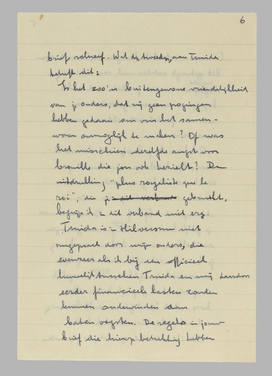 6
brief schreef. Wat de tweede, aan Truida
betreft dit:
Is het zoo'n buitengewone vriendelijkheid
van je ouders, dat zij geen pogingen
hebben gedaan om ons het samen-
wonen onmogelijk te maken? Of was
het misschien dezelfde angst voor
brouille die jou ook bezielt? De
uitdrukking "plus royaliste que le
roi", die je dit verband gebruikt,
begrijp ik in dit verband niet erg.
Truida is in Hilversum niet
door mijn ouders, die
evenwel als ik bij een officieel
huwelijk tusschen Truida en mij daardoor
eerder financieele lasten zouden
kunnen ondervinden dan
baten oogsten. De regels in jouw
brief die hierop betrekking hebben